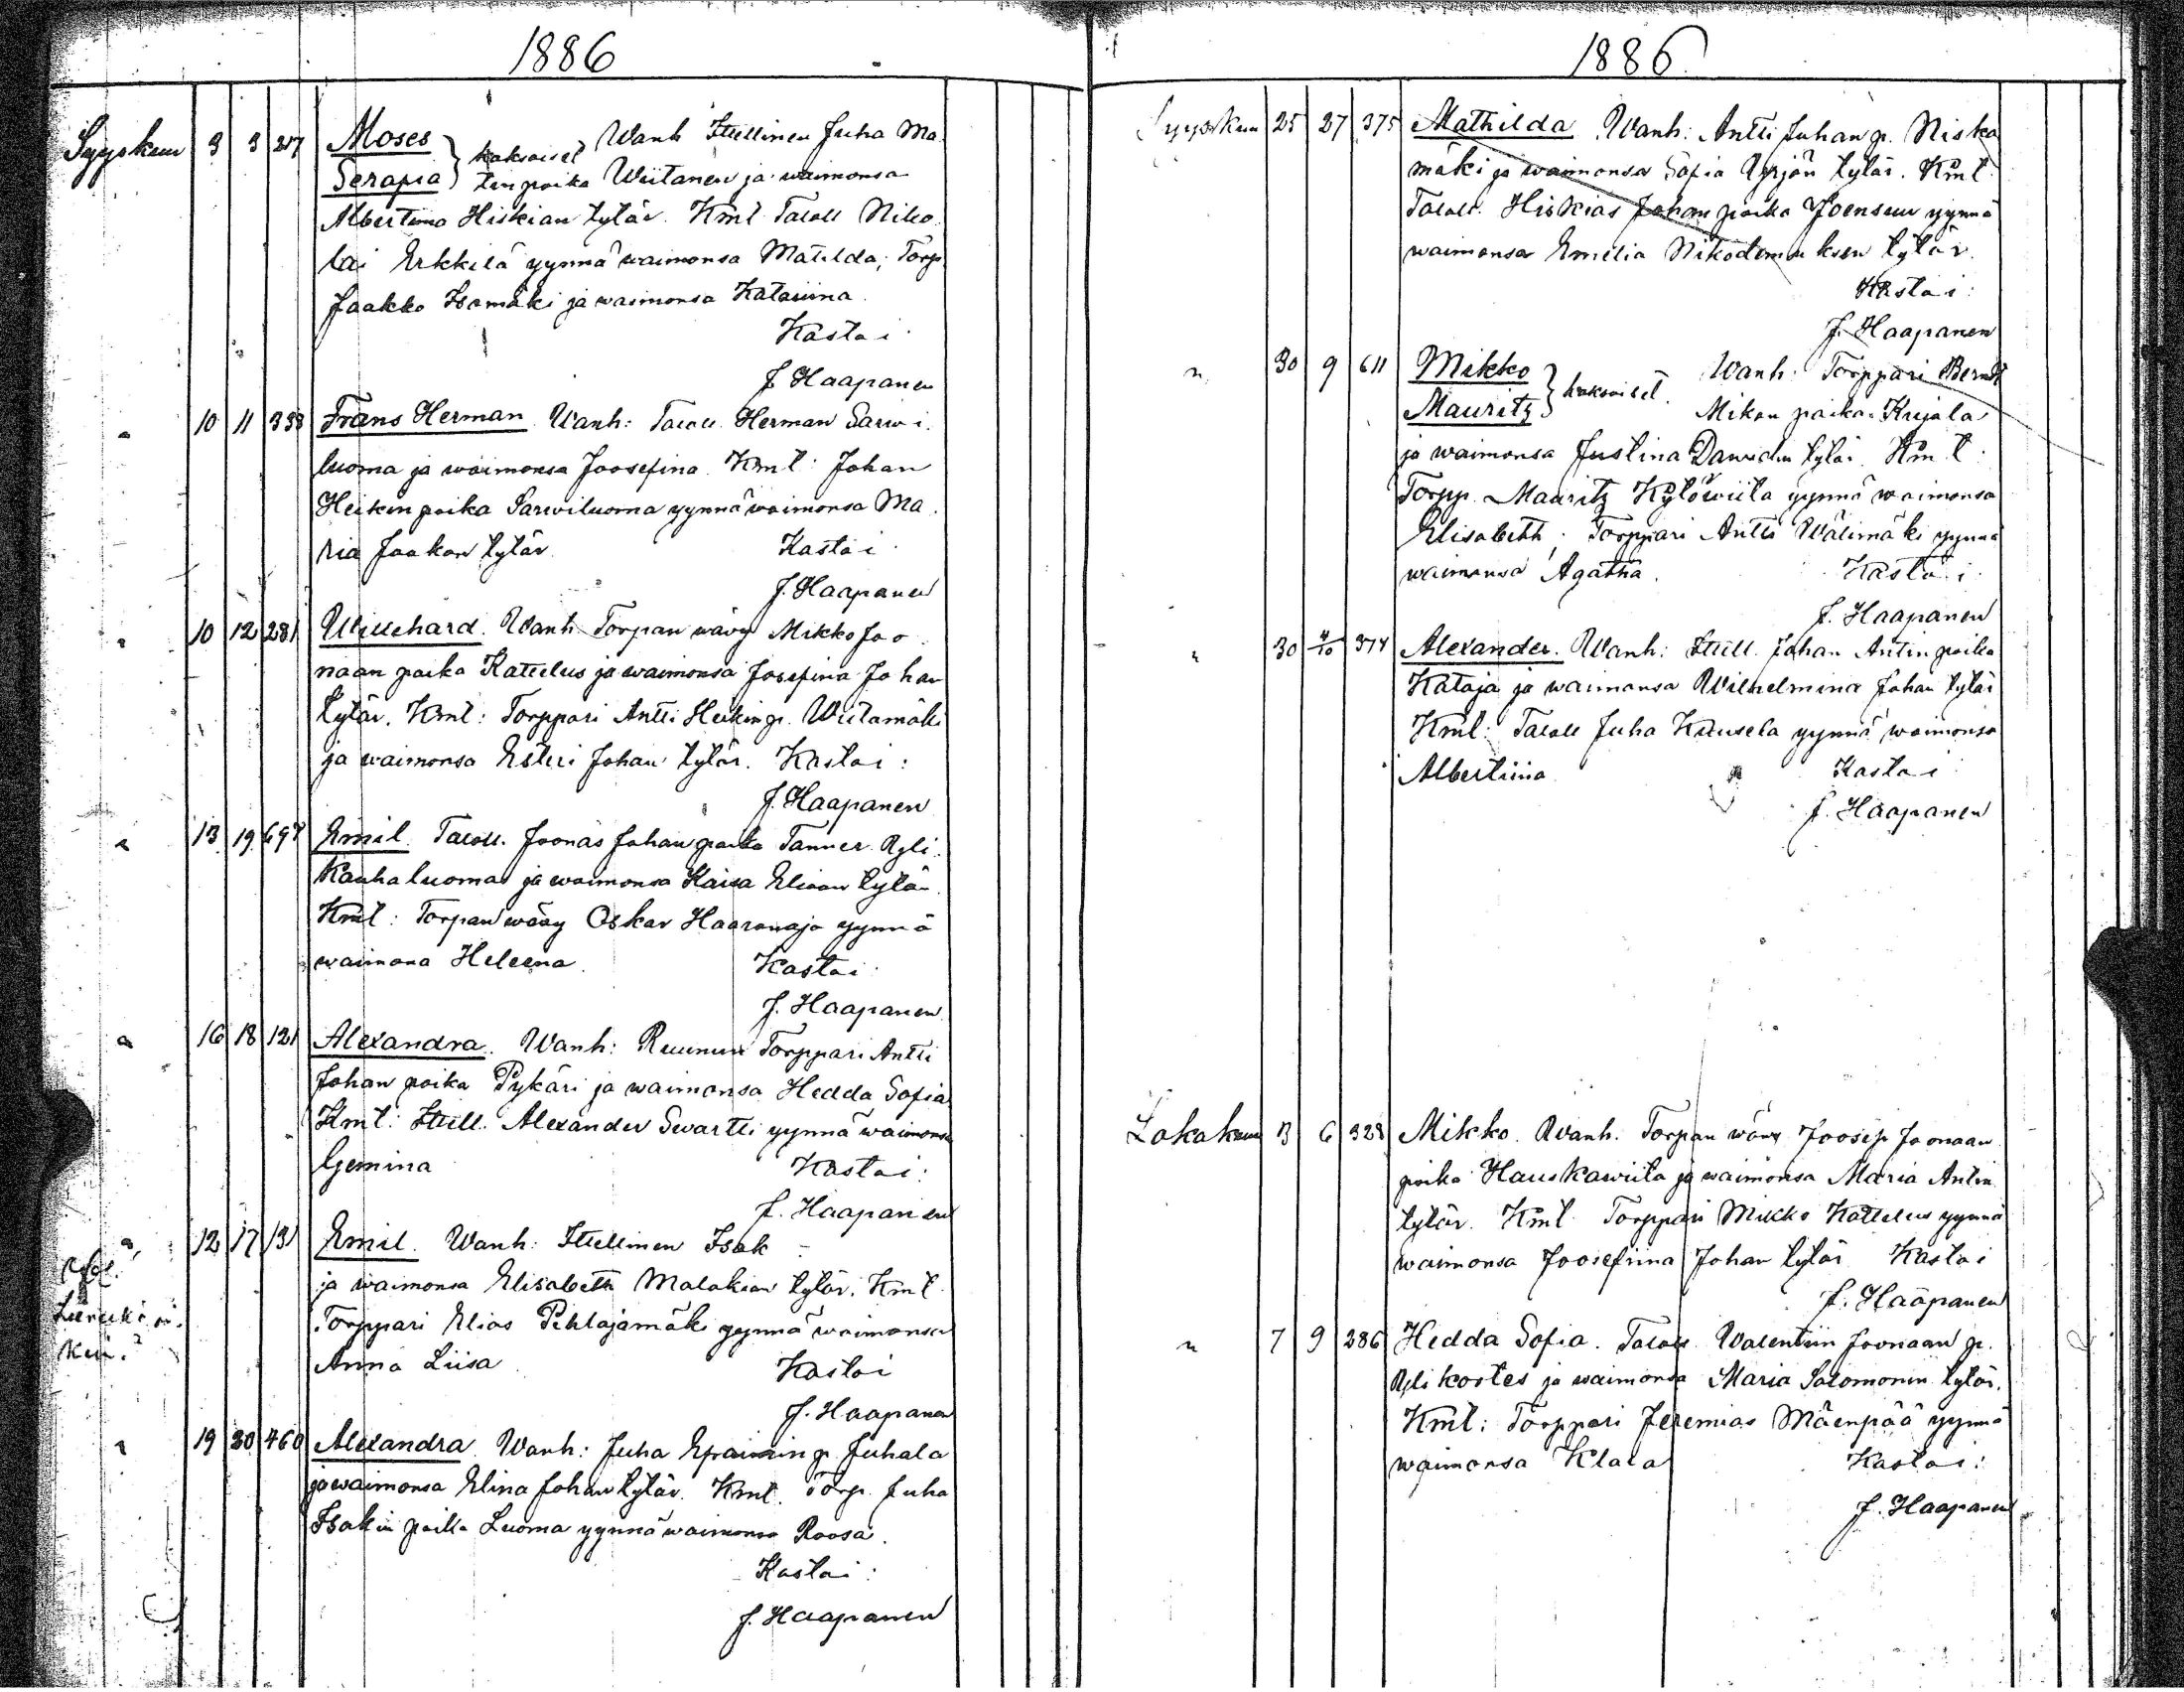 1886
Syyskuu 3 3 217 Moses } kaksoiset Wanh Itsellinen Juha Ma
Serapia } tin poika Wiitanen ja waimonsa
Albertiina Hiskian tytär. Kml Taloll Niko
lai Erkkilä yynnä waimonsa Matilda; Torp
Jaakko Isomäki ja waimonsa Katariina.
Kastoi
J Haapanen
" 10 11 393 Frans Herman. Wanh: Taloll. Herman Sarwi
luoma ja waimonsa Joosefina. Kml: Johan
Heikin poika Sarwiluoma yynnä waimonsa Ma
ria Jaakon tytär. Kastoi
J. Haapanen
" 10 12 281 Willehard. Wanh Torpan wävy Mikko Joo
naan poika Kattelus ja waimonsa Josefina Johan
tytär. Kml: Torppari Antti Heikin p. Wiitamäki
ja waimonsa Esteri Johan tytär. Kastoi:
J. Haapanen
" 13 19 697 Emil. Taloll. Joonas Johan poika Tanner Yli
Kauhaluoma ja waimonsa Kaisa Eliaan tytär.
Kml: Torpan wäwy Oskar Haaranoja yynnä
waimona Heleena. Kastoi:
J. Haapanen
" 16 18 121 Alexandra. Wanh: Ruunun Torppari Antti
Johan poika Pykäri ja waimonsa Hedda Sofia
Kml: Itsell. Alexander Swartti yynnä waimonsa
Gemina Kastoi:
J. Haapanen
" 12 17 131 Emil. Wanh: Itsellinen Isak
ja waimonsa Elisabeth Malakian tytär. Kml
Torppari Elias Pihlajamäki yynnä waimonsa
Anna Liisa Kastoi
J. Haapanen
" 19 20 460 Alexandra. Wanh: Juha Epraimin p. Juhala
ja waimonsa Elina Johan tytär. Kml. Torp. Juha
Isakin poika Luoma yynnä waimonsa Roosa.
Kastoi:
J. Haapanen
1886
Syyskuu 25 27 375 Mathilda. Wanh: Antti Juhan p. Niska
mäki ja waimonsa Sofia Yrjön tytär. Kml
Taloll. Hiskias Johan poika Joensuu yynnä
waimonsa Emilia Nikodemuksen tytär.
Kastoi:
J. Haapanen
" 30 9 611 Mikko } kaksoiset. Wanh: Torppari Berndt
Mauritz } Mikon poika Kujala
ja waimonsa Justina Dawidin tytär Kml:
Torpp. Mauritz Kylöwiita yynnä waimonsa
Elisabeth; Torppari Antti Wälimäki yynnä
waimonsa Agatha. Kastoi
J. Haapanen
" 30 4/10 374 Alexander. Wanh: Itsell. Johan Antin poika
Kataja ja waimonsa Wilhelmina Johan tytär
Kml: Taloll Juha Kuusela yynnä waimonsa
Albertiina Kastoi
J. Haapanen
Lokakuu 3 6 328 Mikko. Wanh. Torpan wäwy Joosep Joonaan
poika Hauskawiita ja waimonsa Maria Antin
tytär. Kml Torppari Mikko Kattelus yynnä
waimonsa Joosefiina Johan tytär Kastoi
J. Haapanen
" 7 9 286 Hedda Sofia. Taloll. Walentiin Joonaan p.
Ylikootes ja waimonsa Maria Salomonin tytär.
Kml: Torppari Jeremias Mäenpää yynnä
waimonsa Klara Kastoi:
J. Haapanen